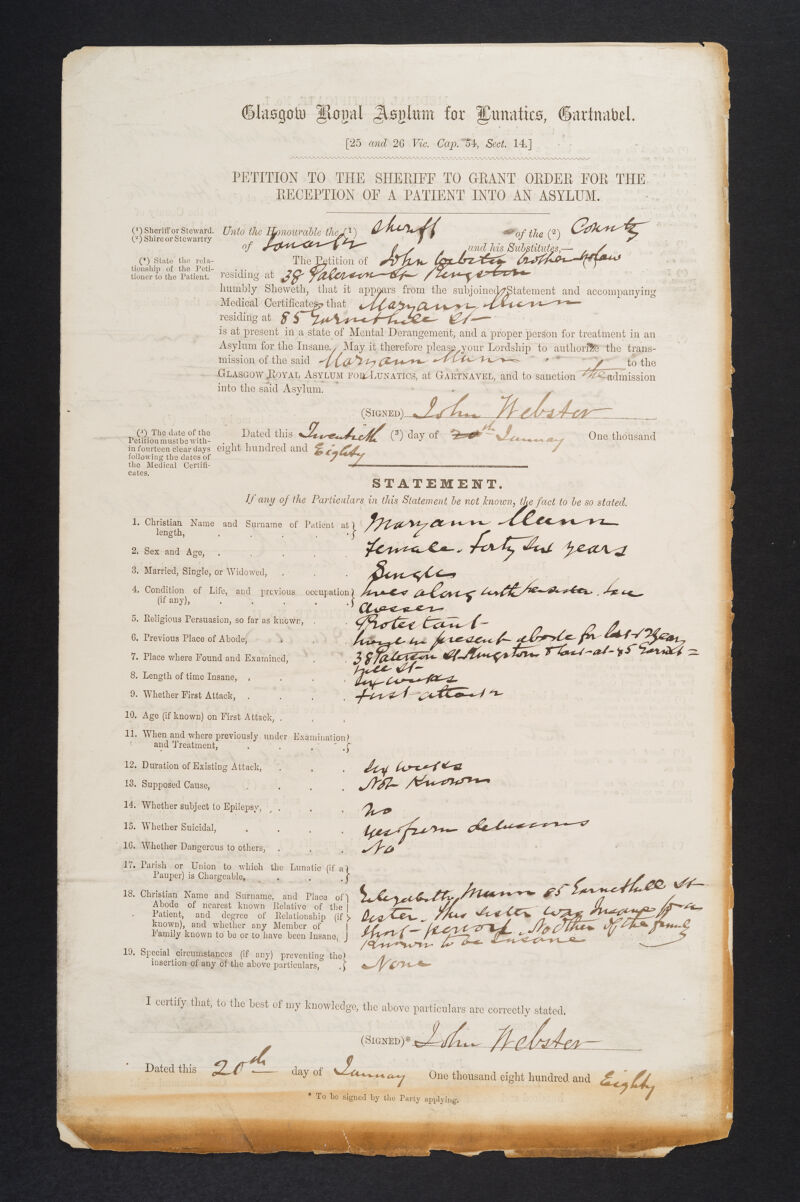 Glasgow Royal Asylum for Lunatics, Gartnabel.
[25 and 26 Vic. Cap. 54, Sect. 14.]
PETITION TO THE SHERIFF TO GRANT ORDER FOR THE
RECEPTION OF A PATIENT INTO AN ASYLUM.
(¹) Sheriff or Steward.
(²) Shire or Stewartry
Unto the Honourable the (¹) Sheriff of the (²) County
of Lanark and his Substitutes,—
(*) State the rela-
tionship of the Peti-
tioner to the Patient.
The Petition of John Webster brother in law
residing at 38 Paterson St Kingston
humbly Sheweth, that it appears from the subjoined Statement and accompanying
Medical Certificates, that Maryann Munn
residing at 85 Garnethill St
is at present in a state of Mental Derangement, and a proper person for treatment in an
Asylum for the Insane. May it therefore please your Lordship to authorize the trans-
mission of the said Maryann Munn to the
GLASGOW ROYAL ASYLUM FOR LUNATICS, at GARTNAVEL, and to sanction the admission
into the said Asylum.
(SIGNED) John Webster
(³) The date of the
Petition must be with-
in fourteen clear days
following the dates of
the Medical Certifi-
cates.
Dated this Twentieth (³) day of 20th January One thousand
eight hundred and Eighty
STATEMENT.
If any of the Particulars in this Statement be not known, the fact to be so stated.
1. Christian Name and Surname of Patient at length, Maryann Munn
2. Sex and Age, Female. Forty Six years
3. Married, Single, or Widowed, Single
4. Condition of Life, and previous occupation (if any), lives along with her sister
5. Religious Persuasion, so far as known, Protestant
6. Previous Place of Abode, have in present abode for last years
7. Place where Found and Examined, 38 Paterson St Kingston & last at 85 Garnet=
hill St
8. Length of time Insane, Six weeks
9. Whether First Attack, First attack
10. Age (if known) on First Attack,
11. When and where previously under Examination and Treatment,
12. Duration of Existing Attack, Six weeks
13. Supposed Cause, Not Known
14. Whether subject to Epilepsy, no
15. Whether Suicidal, yes from delusions
16. Whether Dangerous to others, No
17. Parish or Union to which the Lunatic (if a Pauper) is Chargeable,
18. Christian Name and Surname, and Place of
Abode of nearest known Relative of the
Patient, and degree of Relationship (if
known), and whether any Member of
Family known to be or to have been Insane,
Elizabeth Munn 85 Garnethill St
Sister. This Sister was Insane for a
short period. No Other of the family
Known to be Insane
19. Special circumstances (if any) preventing the insertion of any of the above particulars, None
I certify that, to the best of my knowledge, the above particulars are correctly stated.
(SIGNED)* John Webster
Dated this 20th day of January One thousand eight hundred and Eighty
* To be signed by the Party applying.